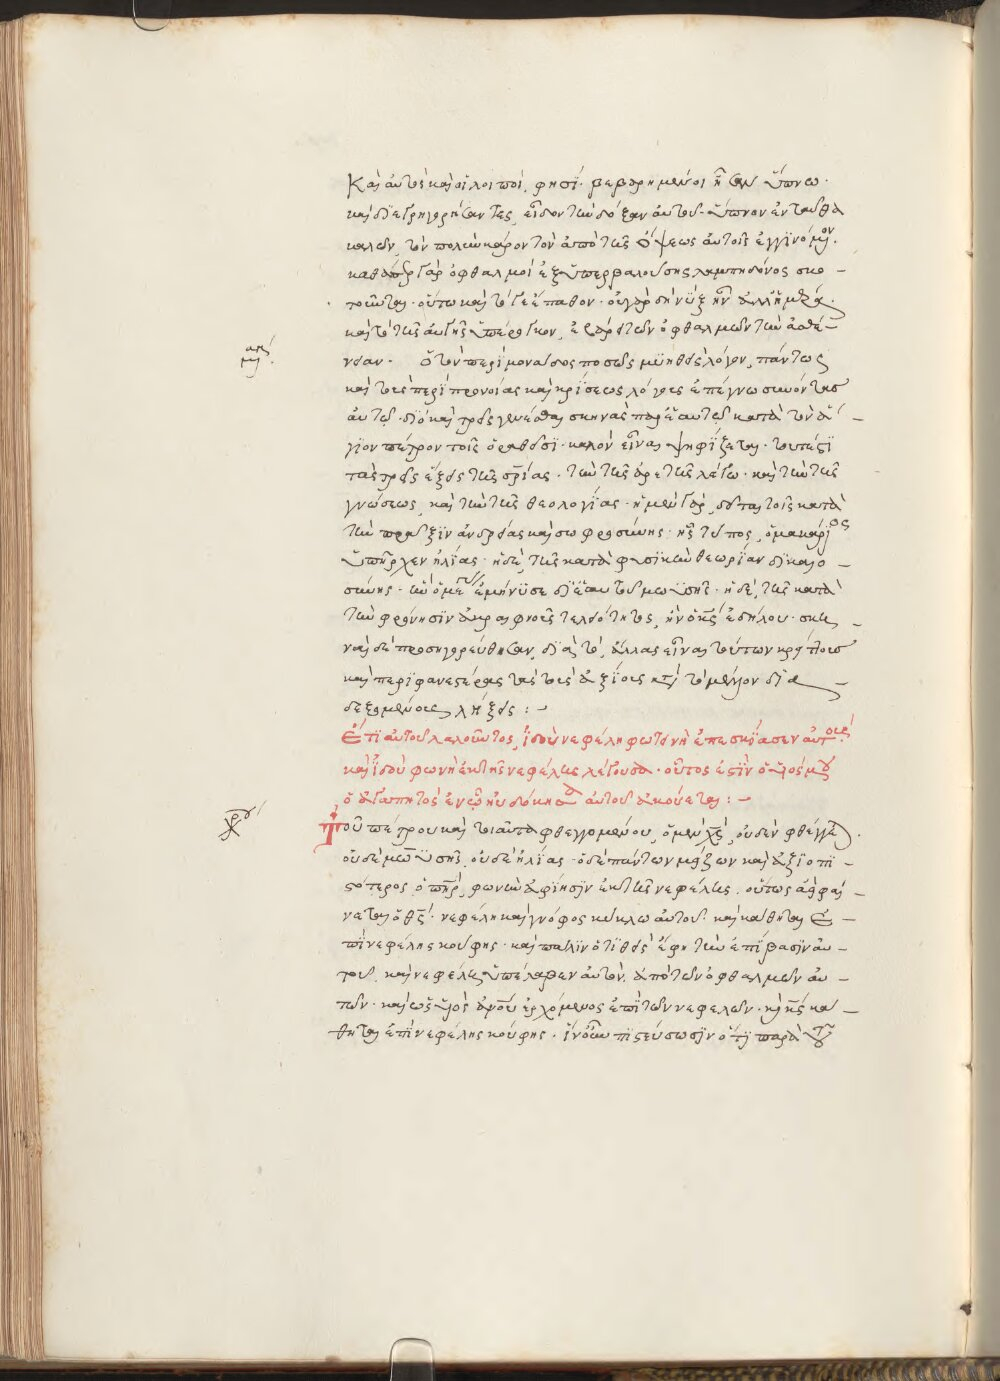 Καὶ αὐτοὶ καὶ οἱ λοιποί, φησί· βεβαρημένοι ἦσαν ὕπνω·
καὶ διεγρηγορήσαντες, εἶδον τὴν δόξαν αὐτοῦ· ὕπνον ἐνταῦθα
καλῶν, τὸν πολὺν κάρον τὸν ἀπὸ τῆς ὄψεως αὐτοῖς ἐγγινόμενον·
καθάπερ γὰρ ὀφθαλμοὶ ἐξ ὑπερβαλούσης λαμπηδόνος σκο
τοῦνται· οὕτω καὶ τότε ἔπαθον· οὐ γὰρ δὴ νὺξ ἦν ἀλλ' ἡμέρα·
καὶ τὸ τῆς αὐγῆς ὑπέρογκον, ἐβάρει τῶν ὀφθαλμῶν τὴν ἀσθέ
νειαν· Ὁ τὸν περὶ μονάδος ποσῶς μυηθεὶς λόγον, πάντως
καὶ τοὺς περὶ προνοίας καὶ κρίσεως λόγους ἐπέγνω συνόντας
αὐτῷ· διὸ καὶ τρεῖς γενέσθαι σκηνὰς παρ' ἑαυτῷ κατὰ τὸν ἅ
γιον πέτρον τοῖς ὁραθεῖσι· καλὸν εἶναι ψηφίζεται· τουτέστι
τὰς τρεῖς ἕξεις τῆς σωτηρίας· τὴν τῆς ἀρετῆς λέγω· καὶ τὴν τῆς
γνώσεως, καὶ τὴν τῆς θεολογίας· ἡ μὲν γὰρ, δεῖται τοῖς κατὰ
τὴν πρᾶξιν ἀνδρείας καὶ σωφροσύνης· ἧς τύπος, ὁ μακάριος
ὑπῆρχεν ἠλίας· ἡ δὲ, τῆς κατὰ φυσικὴν θεωρίαν δικαιο
σύνης· ἣν ὁ μέγας ἐμήνυσε δι' ἑαυτοῦ μωυσῆς· ἡ δὲ, τῆς κατὰ
τὴν φρόνησιν ἀκραιφνοῦς τελειότητος, ἣν ὁ κς ἐδήλου· σκη
ναὶ δὲ προσηγορεύθησαν, διὰ τὸ, ἄλλας εἶναι τούτων κρείττους
καὶ περιφανεστέρας τὰς τοὺς ἀξίους κατὰ τὸ μέλλον δια
δεξομένους λήξεις:
Ἔτι αὐτοῦ λαλοῦντος, ἰδοὺ νεφέλη φωτεινὴ ἐπεσκίασεν αὐτούς
καὶ ἰδοὺ φωνὴ ἐκ τῆς νεφέλης λέγουσα· οὗτός ἐστιν ὁ υἱός μου
ὁ ἀγαπητὸς ἐν ᾧ ηὐδόκησα αὐτοῦ ἀκούετε:
Τοῦ πέτρου καὶ τοιαῦτα φθεγγομένου, ὁ μὲν χς, οὐδὲν φθέγγεται·
οὐδὲ μωυσῆς, οὐδὲ ἠλίας· ὁ δὲ πάντων μείζων καὶ ἀξιοπι
στότερος ὁ πηρ, φωνὴν ἀφίησιν ἐκ τῆς νεφέλης. οὕτως ἀεὶ φαί
νεται ὁ θς· νεφέλη καὶ γνόφος κύκλω αὐτοῦ· καὶ κάθηται ἐ
πὶ νεφέλης κούφης· καὶ πάλιν ὁ τιθεὶς ἔφη τὴν ἐπίβασιν αὐ
τοῦ, καὶ νεφέλη ὑπέλαβεν αὐτὸν, ἀπὸ τῶν ὀφθαλμῶν αὐ
τῶν· καὶ ὡς υἱὸς ἀνου ἐρχόμενος ἐπὶ τῶν νεφελῶν· καὶ κς κά
θηται ἐπὶ νεφέλης κούφης. ἵν' οὖν πιστεύσωσιν ὅτι παρὰ τοῦ